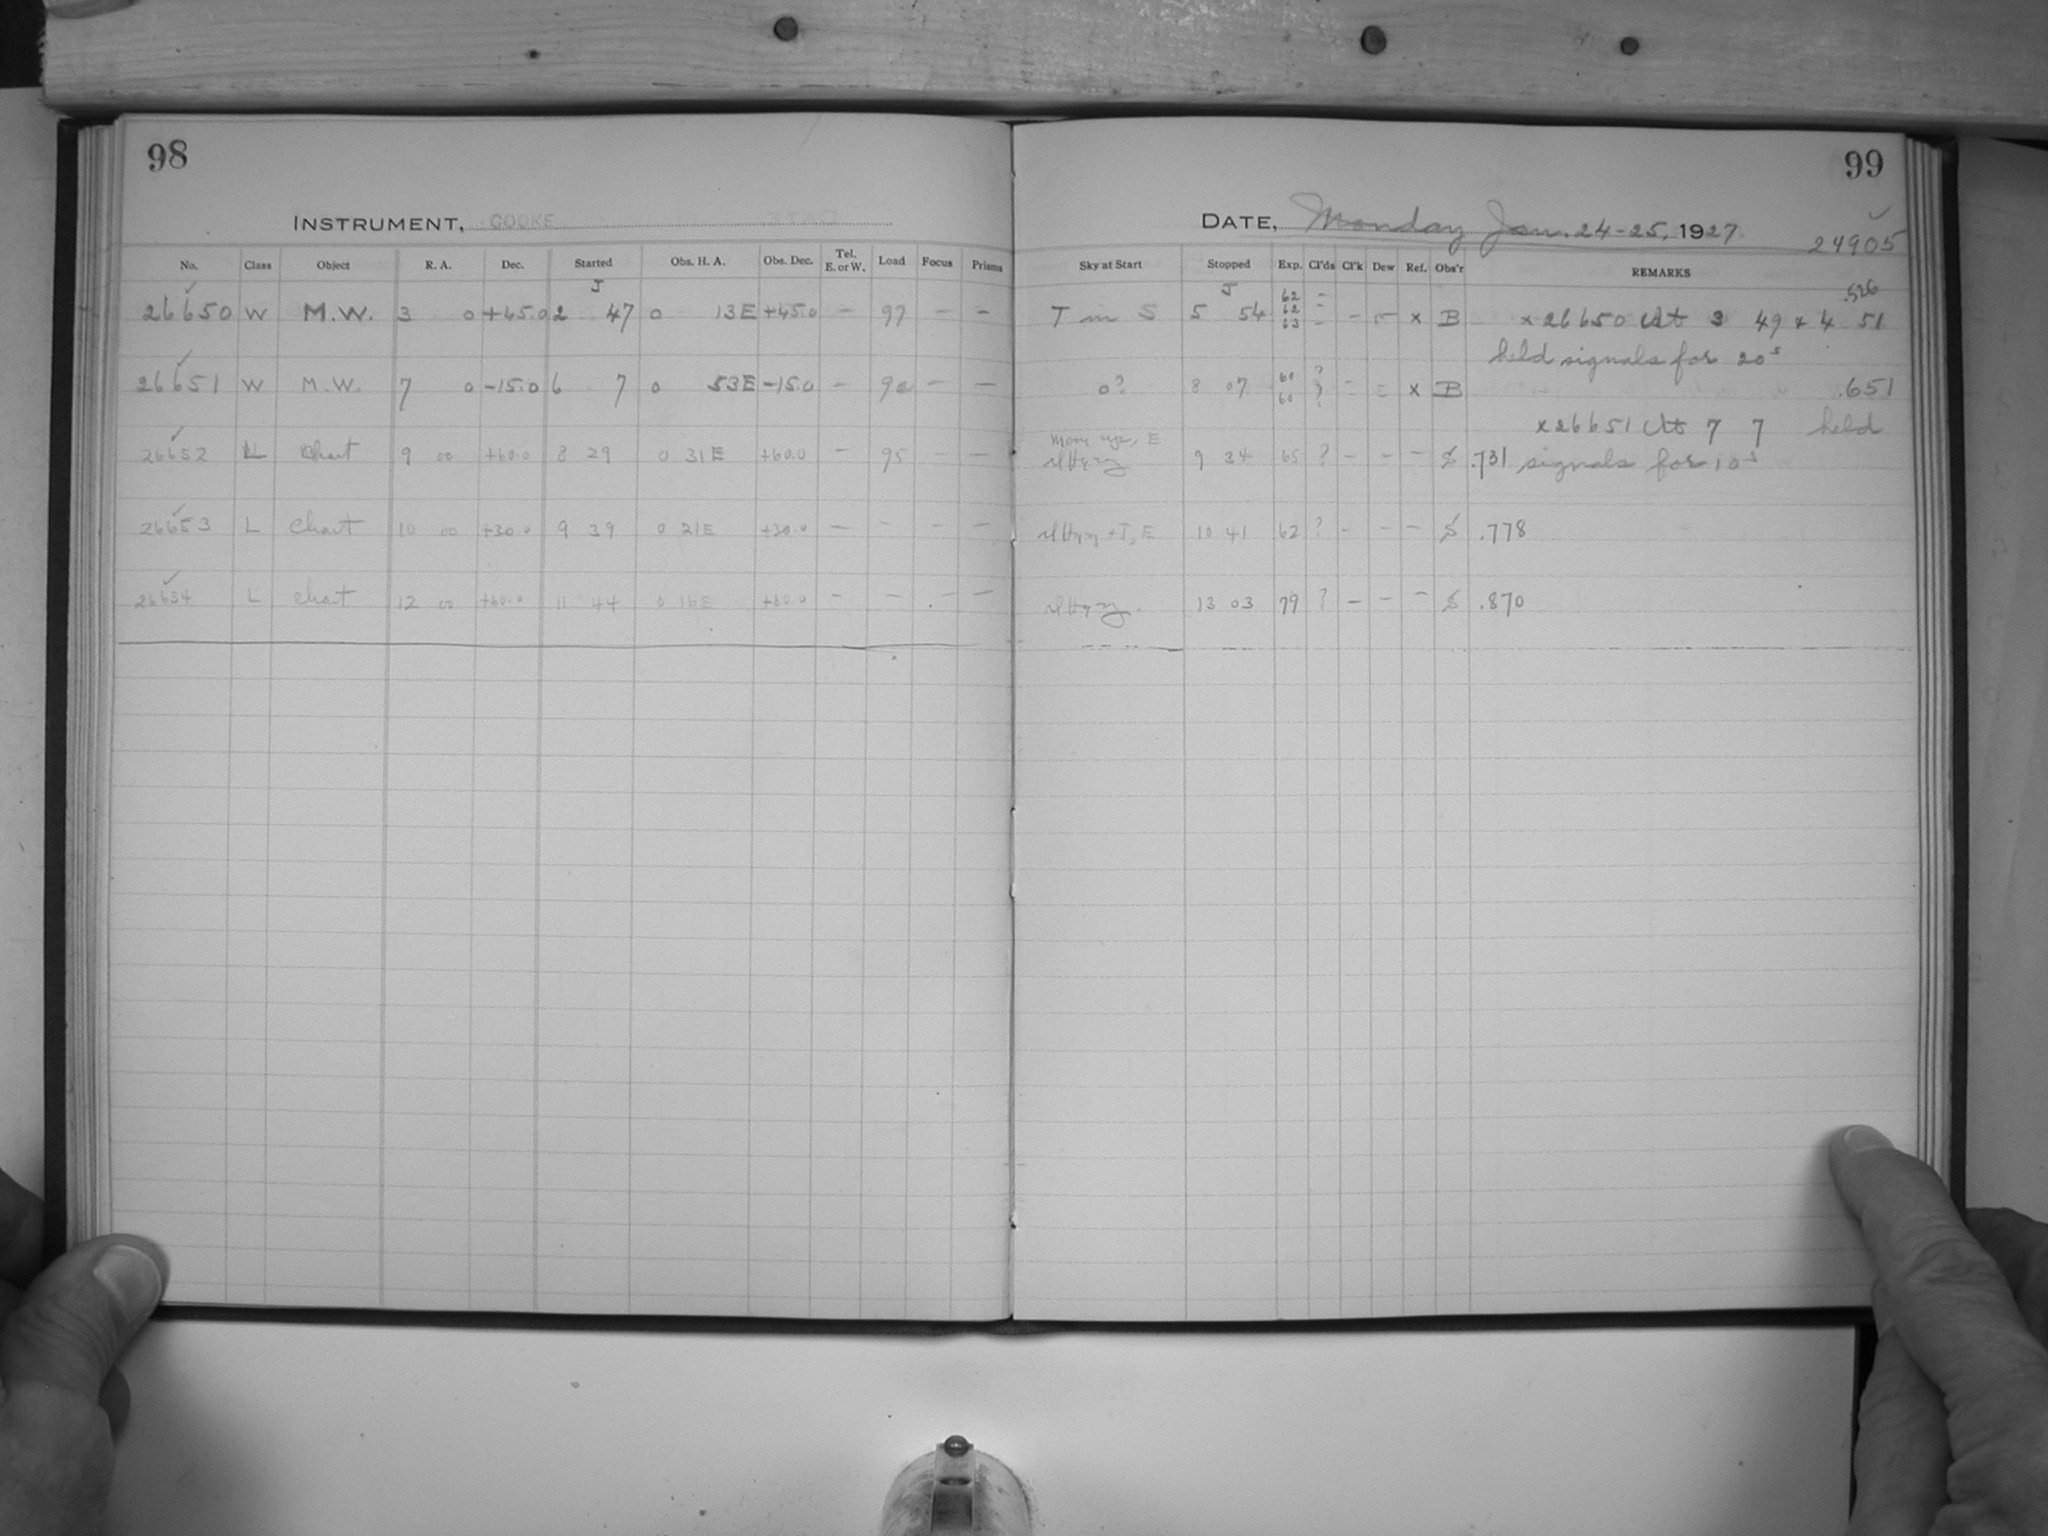 98
INSTRUMENT, COOKE
No. Class Object R. A. Dec. Started Obs. H. A. Obs. Dec. Tel. E. or W. Load Focus Prisms
J
26650 W M.W. 3 0 +45.0 2 47 0 13E +45.0 – 97 – –
26651 W M.W. 7 0 -15.0 6 7 0 53E -15.0 – 90 – –
26652 L Chart 9 00 +60.0 8 29 0 31E +60.0 – 95 – –
26653 L Chart 10 00 +30.0 9 39 0 21E +30.0 – – – –
26654 L Chart 12 00 +60.0 11 44 0 16E +60.0 – – – –
99
DATE, Monday Jan. 24-25, 1927.
24905
Sky at Start Stopped Exp. Cl'ds Cl'k Dew Ref. Obs'r REMARKS
J 62 – .526
T in S 5 54 62 – – – x B x 26650 At 3 49 + 4 51
63 –
held signals for 20s
60 ?
0? 8 07 ? – – x B .651
60
x 26651 At 7 7 held
E
9 34 65 ? – – – S .731 signals for 10s
+T, E 10 41 62 ? – – – S .778
13 03 79 ? – – – S .870